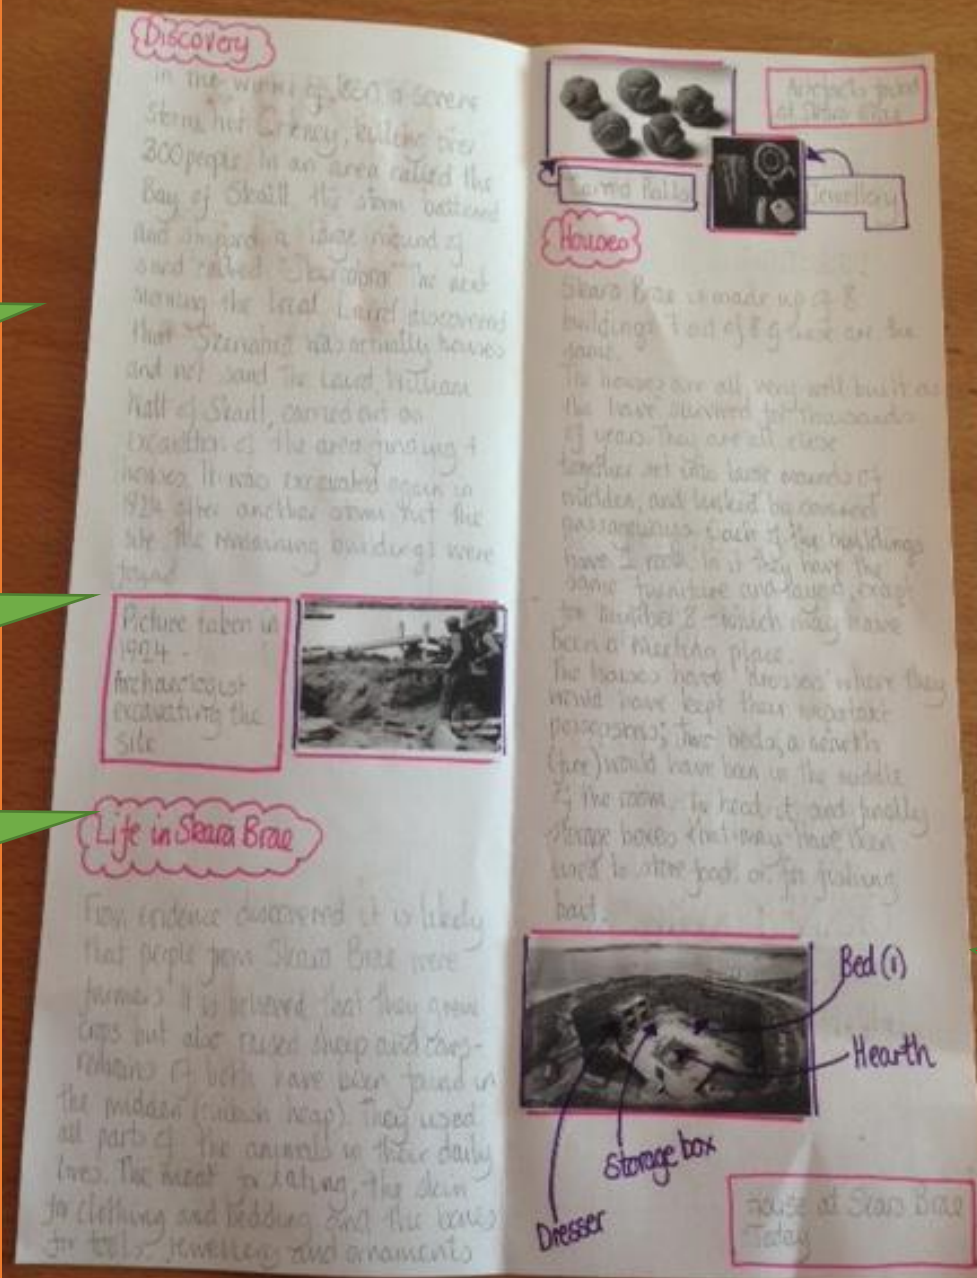 Discovery
In the winter of 1850 a severe
storm hit Orkney, killing over
300 people. In an area called the
Bay of Skaill the storm battered
and a large mound of
sand called The next
morning the local Laird discovered
that was actually houses
and not sand. The Laird, William
Watt of Skaill, carried out an
of the area finding 4
houses. It was excavated again in
1924 after another storm hit the
site the remaining buildings were
found
Picture taken in
1924 -
Archaeologist
excavating the
site
Life in Skara Brae
From evidence discovered it is likely
that people from Skara Brae were
farmers. It is believed that they grew
crops but also raised sheep and cows-
remains of both have been found in
the midden (rubbish heap). They used
all parts of the animals in their daily
lives. The meat for eating, the skin
for clothing and bedding and the bones
for tools, jewellery and ornaments
Artefacts found
at Skara Brae
Balls
Jewellery
Houses
Skara Brae is made up of 8
buildings 7 out of 8 of these are the
same.
The houses are all very well built as
the have survived for thousands
of years. They are all close
together set into large mounds of
midden, and linked by covered
passageways. Each of the buildings
have 1 room. In it they have the
same furniture and layout, except
for number 8 - which may have
been a meeting place.
The houses have 'dresses' where they
would have kept their important
two beds, a hearth
(fire) would have been in the middle
of the room to heat it and finally
storage boxes that may have been
used to store food or for fishing
bait.
Bed (1)
Hearth
Storage box
Dresser
House at Skara Brae
Today